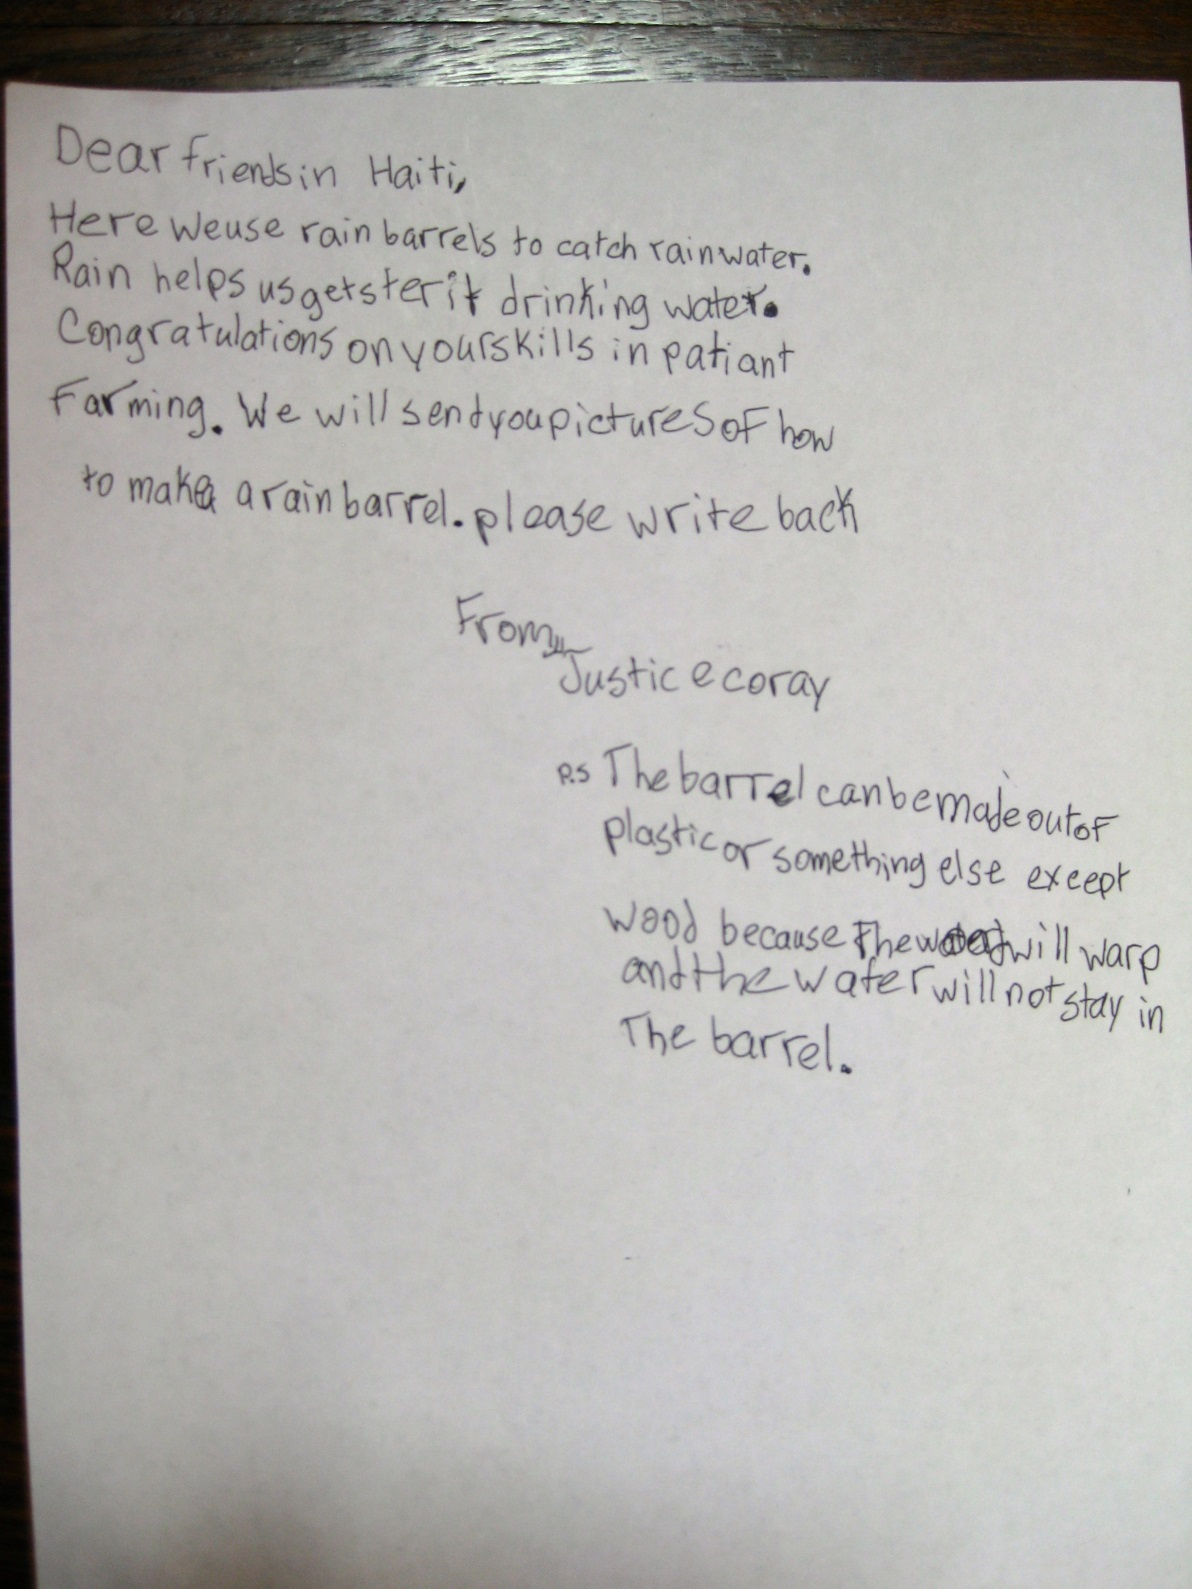 Dear friends in Haiti,
Here we use rain barrels to catch rain water.
Rain helps us get sterit drinking water.
Congratulations on your skills in patiant
Farming. We will send you pictures of how
to make a rain barrel. please write back
From,
Justice coray
P.S The barrel can be made out of
plastic or something else except
wood because the wood will warp
and the water will not stay in
The barrel.